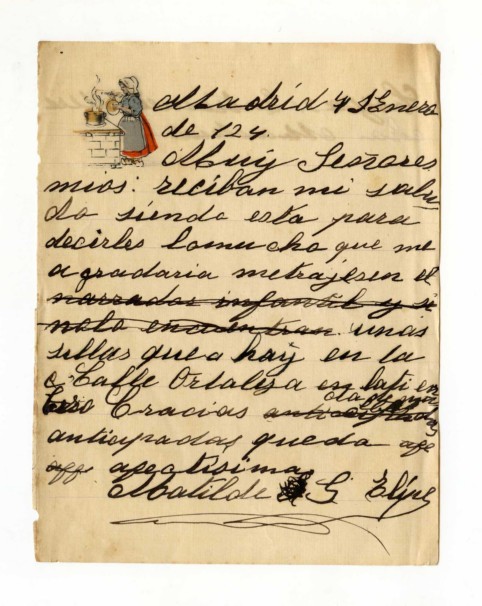 Madrid 4 Enero
de 124.
Muy Señores
mios: reciban mi salu
do siendo esta para
decirles lomucho que me
agradaria metrajesen el
narrador infantil y si
nolo encuentran unas
sillas que a hay en la
c. Calle Ortaleza en lati en
Gracias
anticipadas queda afe
afe afectisima
Matilde G Elipe